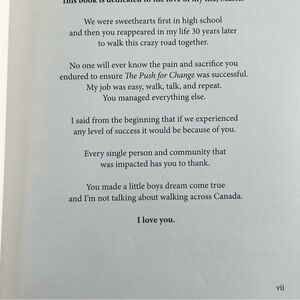 This book is dedicated to the love of my life,
We were sweethearts first in high school
and then you reappeared in my life 30 years later
to walk this crazy road together.
No one will ever know the pain and sacrifice you
endured to ensure The Push for Change was successful.
My job was easy, walk, talk, and repeat.
You managed everything else.
I said from the beginning that if we experienced
any level of success it would be because of you.
Every single person and community that
was impacted has you to thank.
You made a little boys dream come true
and I'm not talking about walking across Canada.
I love you.
vii